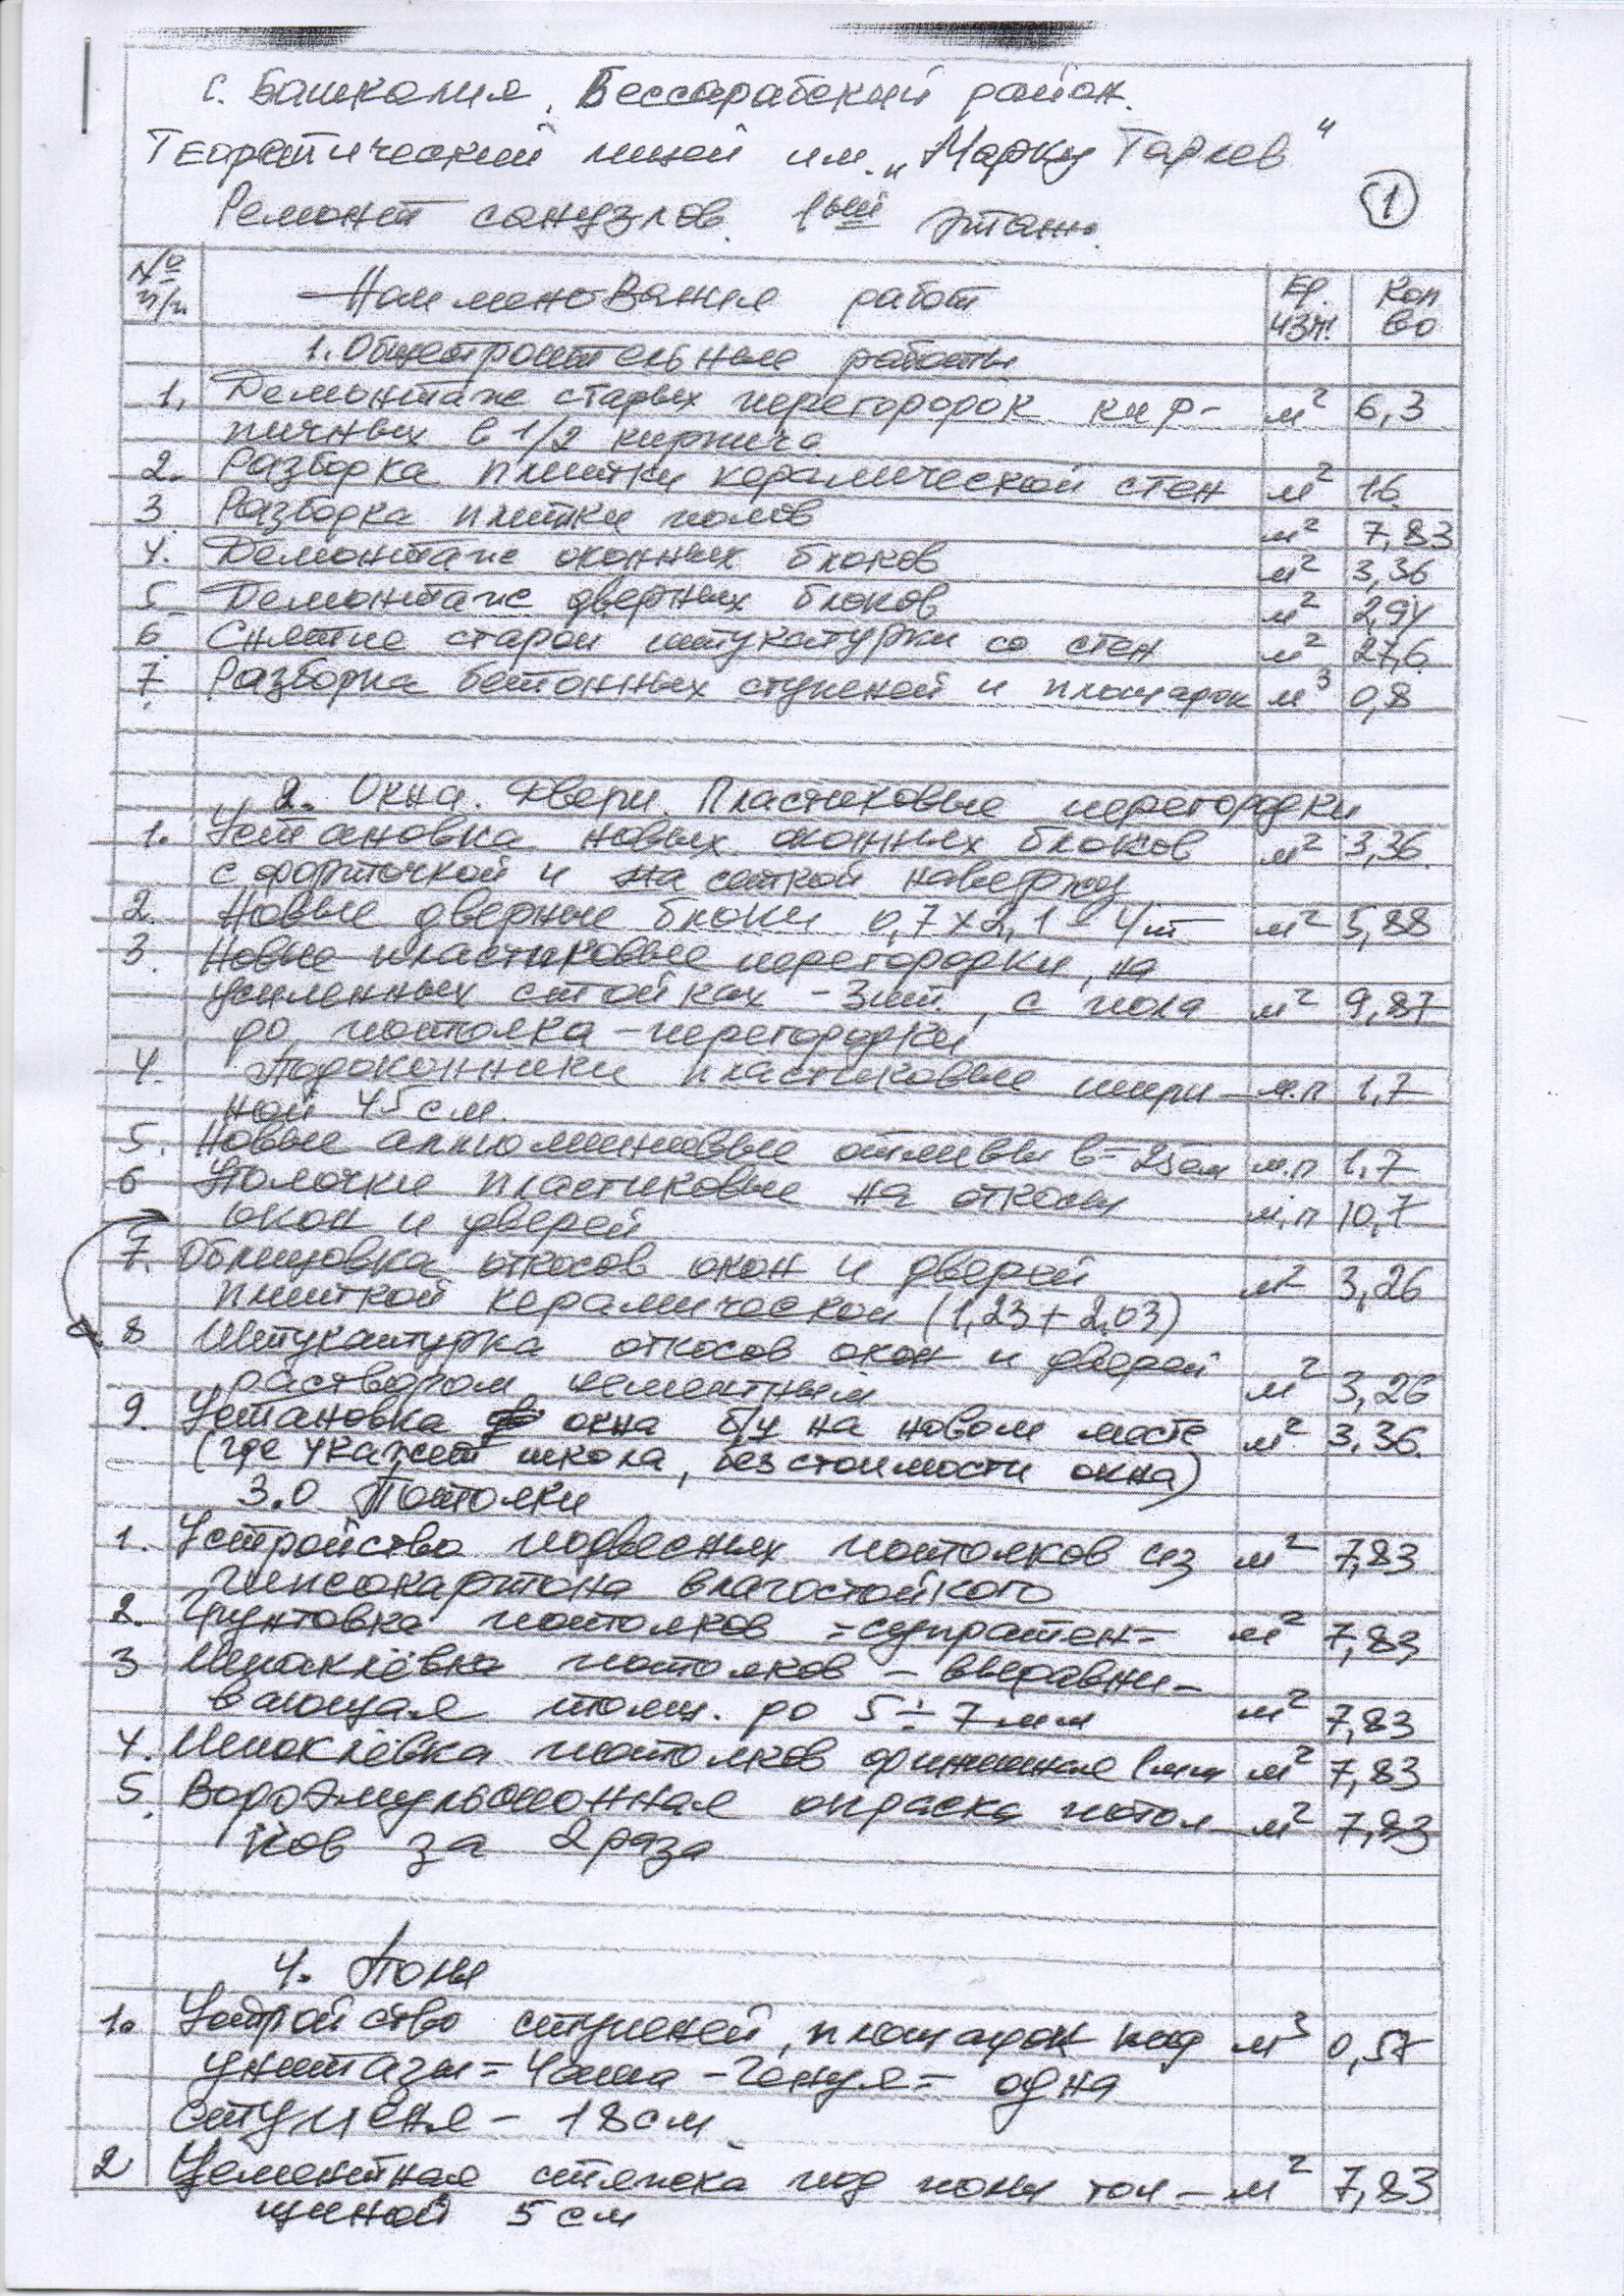 с. Башкалия, Бессарабский район.
Теоретический лицей им. „Марку Тарлев"
Ремонт санузлов. 1ый этаж.
1
№ п/п Наименование работ Ед. изм. Кол во
1. Общестроительные работы
1. Демонтаж старых перегородок кир- м² 6,3
пичных в 1/2 кирпича
2. Разборка плитки керамической стен м² 16
3 Разборка плитки полов м² 7,83
4. Демонтаж оконных блоков м² 3,36
5 Демонтаж дверных блоков м² 2,94
6 Снятие старой штукатурки со стен м² 27,6
7. Разборка бетонных ступеней и площадок м³ 0,8
2. Окна. Двери. Пластиковые перегородки
1. Установка новых оконных блоков м² 3,36
с форточкой и сеткой наверху
2. Новые дверные блоки 0,7х2,1 - 4шт м² 5,88
3. Новые пластиковые перегородки, на
усиленных стойках - 3шт., с пола м² 9,87
до потолка - перегородки
4. Подоконники пластиковые шири- м.п 1,7
ной 45 см.
5. Новые алюминиевые отливы в=25см м.п 1,7
6 Уголочки пластиковые на откосы м.п 10,7
окон и дверей
7. Облицовка откосов окон и дверей м² 3,26
плиткой керамической (1,23+2,03)
8 Штукатурка откосов окон и дверей
раствором цементным м² 3,26
9. Установка окна б/у на новом месте м² 3,36
(где укажет школа, без стоимости окна)
3.0 Потолки
1. Устройство подвесных потолков из м² 7,83
гипсокартона влагостойкого
2. Грунтовка потолков =супратен= м² 7,83
3 Шпаклёвка потолков - выравни-
вающая толщ. до 5÷7 мм м² 7,83
4. Шпаклёвка потолков финишная 1мм м² 7,83
5. Водоэмульсионная окраска потол- м² 7,83
ков за 2 раза
4. Полы
1. Устройство ступеней, площадок под м³ 0,57
унитазы = Чаша - Генуя = одна
ступеня - 18 см
2 Цементная стяжка под полы тол- м² 7,83
щиной 5 см